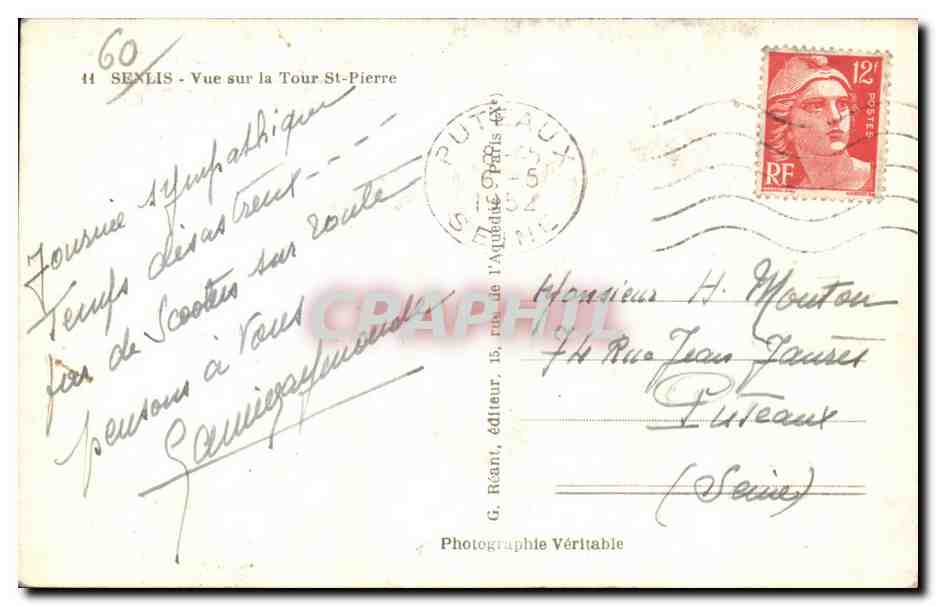 60
11 SENLIS - Vue sur la Tour St-Pierre
Journée sympathique
Temps désastreux - - - -
pas de Scooters sur route
pensons à Vous
PUTEAUX
6 - 5
1952
SEINE
12f
POSTES
RF
G. Réant, éditeur, 15, rue de l'Aqueduc Paris (Xe)
CPAPHIL
Monsieur H. Mouton
74 Rue Jean Jaurès
Puteaux
(Seine)
Photographie Véritable